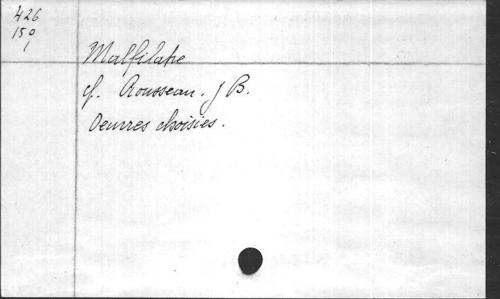 426
150
1
Malfilatre
cf. Rousseau. J B.
Oeuvres choisies.